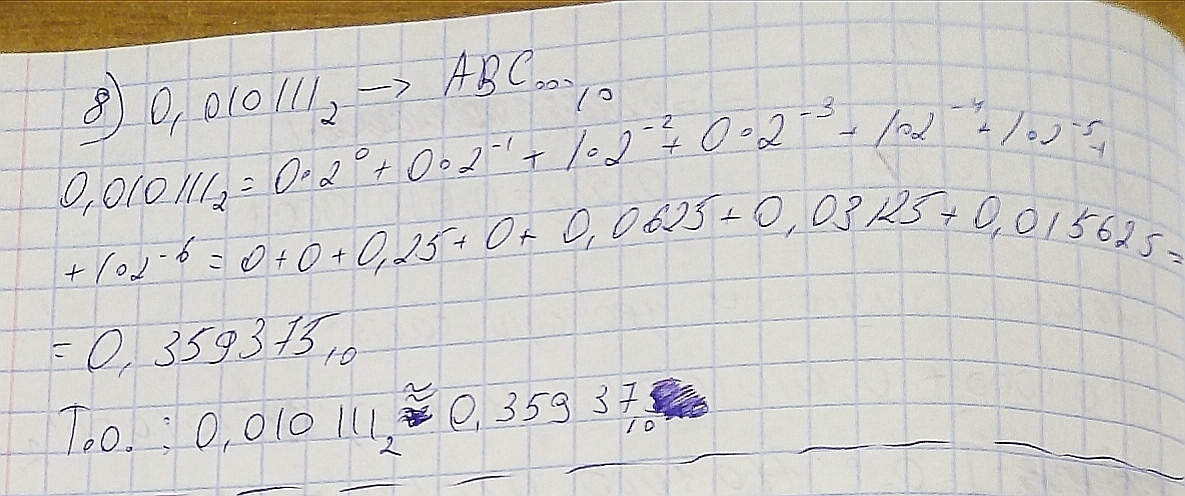 8) 0,010111₂ → ABC...₁₀
0,010111₂ = 0·2⁰ + 0·2⁻¹ + 1·2⁻² + 0·2⁻³ + 1·2⁻⁴ + 1·2⁻⁵ +
+ 1·2⁻⁶ = 0 + 0 + 0,25 + 0 + 0,0625 + 0,03125 + 0,015625 =
= 0,359375₁₀
Т.о. : 0,010111₂ ≈ 0,35937₁₀